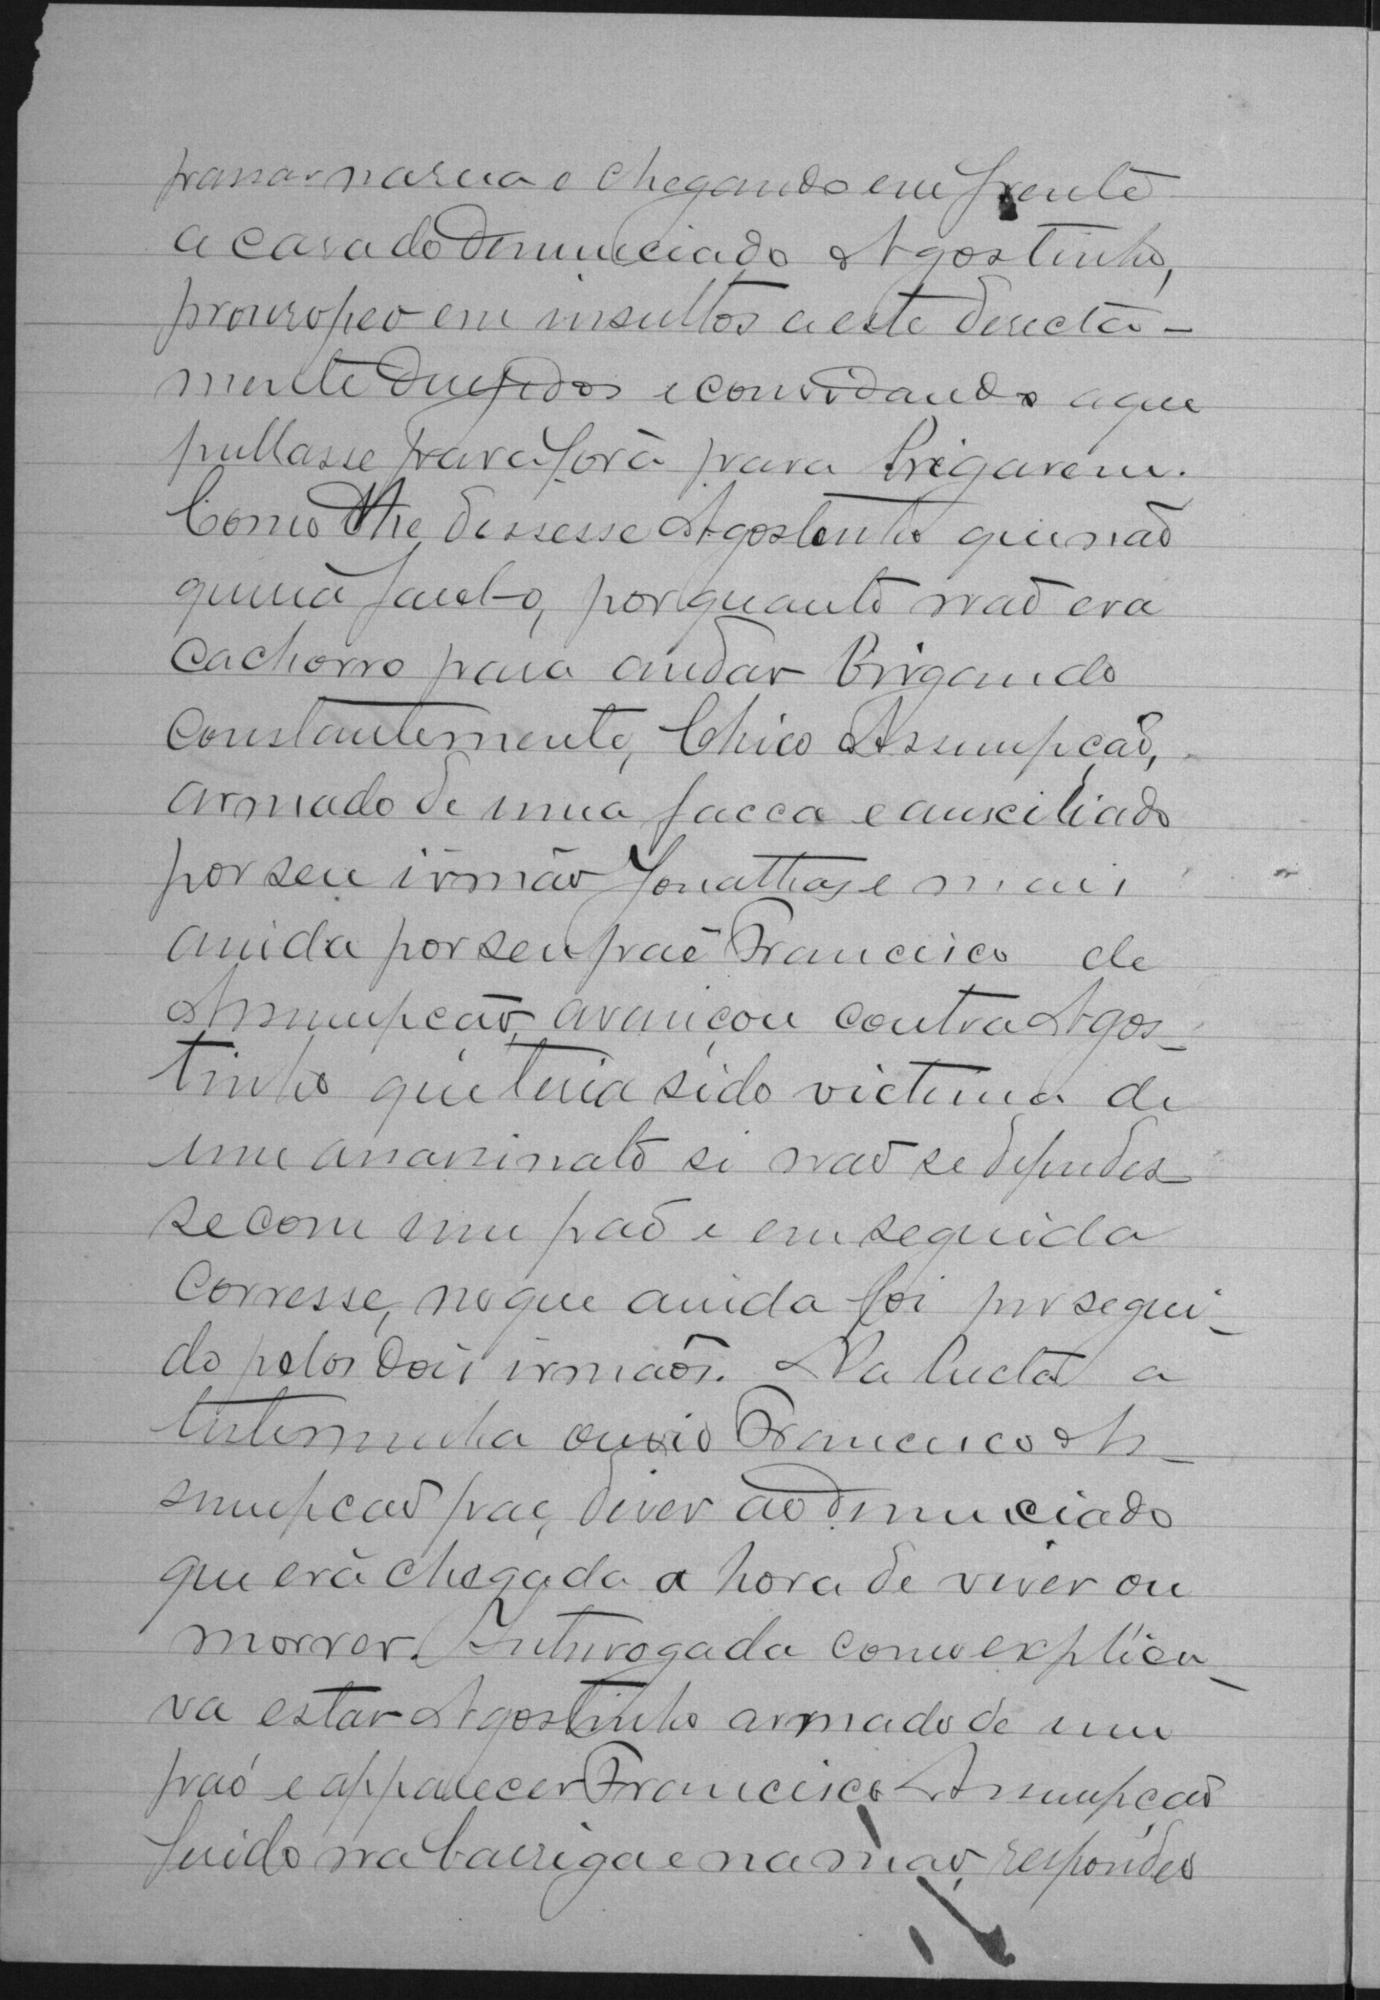 passar na rua e chegando em frente
a casa do denunciado Agostinho,
prorompeo em insultos a este directa-
mente dirigidos e convidando a que
pullasse para fora para brigarem.
Como lhe dissesse Agostinho que não
queria fazel-o, porquanto não era
cachorro para andar brigando
constantemente, Chico Assumpção,
armado de uma facca e auxiliado
por seu irmão Jonathas e mais
ainda por seu pae Francisco de
Assumpção, avançou contra Agos-
tinho que teria sido victima de
um assassinato si não se defendes
se com um pao e em seguida
corresse, no que ainda foi persegui-
do pelos dois irmãos. Na lucta a
testemunha ouvio Francisco As-
sumpcão pae, dizer ao denunciado
que era chegada a hora de viver ou
morrer. Interrogada como explica-
va estar Agostinho armado de um
pao e apparecer Francisco Assumpção
ferido na barriga e na mão, respondeo